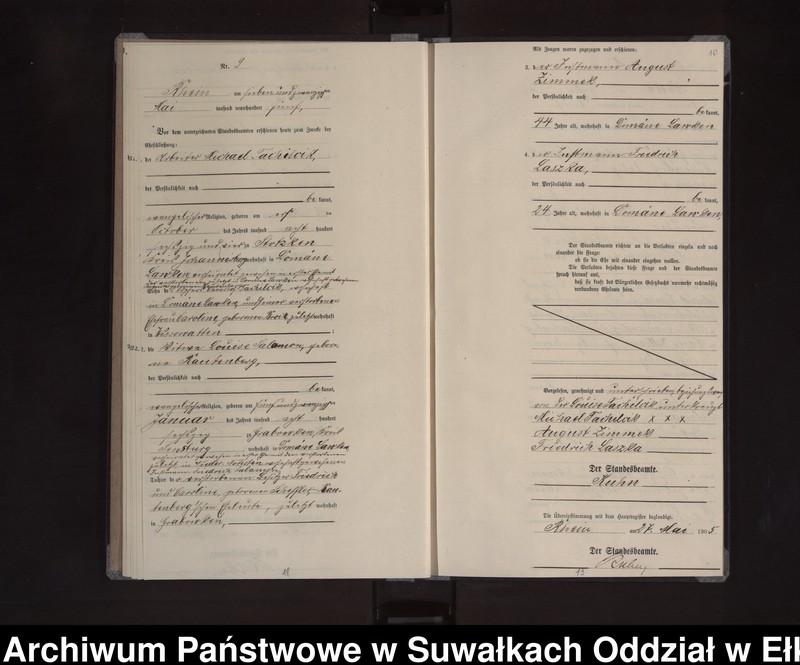 Nr. 9
Rhein am sieben und zwanzigsten
Mai tausend neunhundert fünf,
Vor dem unterzeichneten Standesbeamten erschienen heute zum Zwecke der
Eheschließung:
1. der Arbeiter Michael
der Persönlichkeit nach
be kannt,
evangelischer Religion, geboren am
October des Jahres tausend acht hundert
sechzig und vier zu
Kreis Johannisburg wohnhaft in Domäne
Lawken
in Domäne Lawken, und seiner verstorbenen
Ehefrau Caroline, geborenen zuletzt wohnhaft
in
2. die Witwe Louise Salamon, gebore-
ne Rautenberg,
der Persönlichkeit nach
be kannt,
evangelischer Religion, geboren am fünf und zwanzigsten
Januar des Jahres tausend acht hundert
sechzig in Grabowken, Kreis
Sensburg wohnhaft in Domäne Lawken
Tochter des verstorbenen Besitzer Friedrich
und Caroline, geborenen Rau-
tenberg'schen Eheleute, zuletzt wohnhaft
in Grabowken,
11
Als Zeugen waren zugezogen und erschienen:
10
3. der Instmann August
Zimmek,
der Persönlichkeit nach
be kannt,
44 Jahre alt, wohnhaft in Domäne Lawken
4. der Instmann Friedrich
Laszka,
der Persönlichkeit nach
be kannt,
24 Jahre alt, wohnhaft in Domäne Lawken
Der Standesbeamte richtete an die Verlobten einzeln und nach
einander die Frage:
ob sie die Ehe mit einander eingehen wollen.
Die Verlobten bejahten diese Frage und der Standesbeamte
sprach hierauf aus,
daß sie kraft des Bürgerlichen Gesetzbuchs nunmehr rechtmäßig
verbundene Eheleute seien.
Vorgelesen, genehmigt und unterschrieben beziehungsweise
von der Louise unterkreuzt
Michael x x x
August Zimmek
Friedrich Laszka
Der Standesbeamte.
Kuhn
Die Übereinstimmung mit dem Hauptregister beglaubigt.
Rhein am 27. Mai 1905
Der Standesbeamte.
Kuhn
13
Archiwum Państwowe w Suwałkach Oddział w Ełk